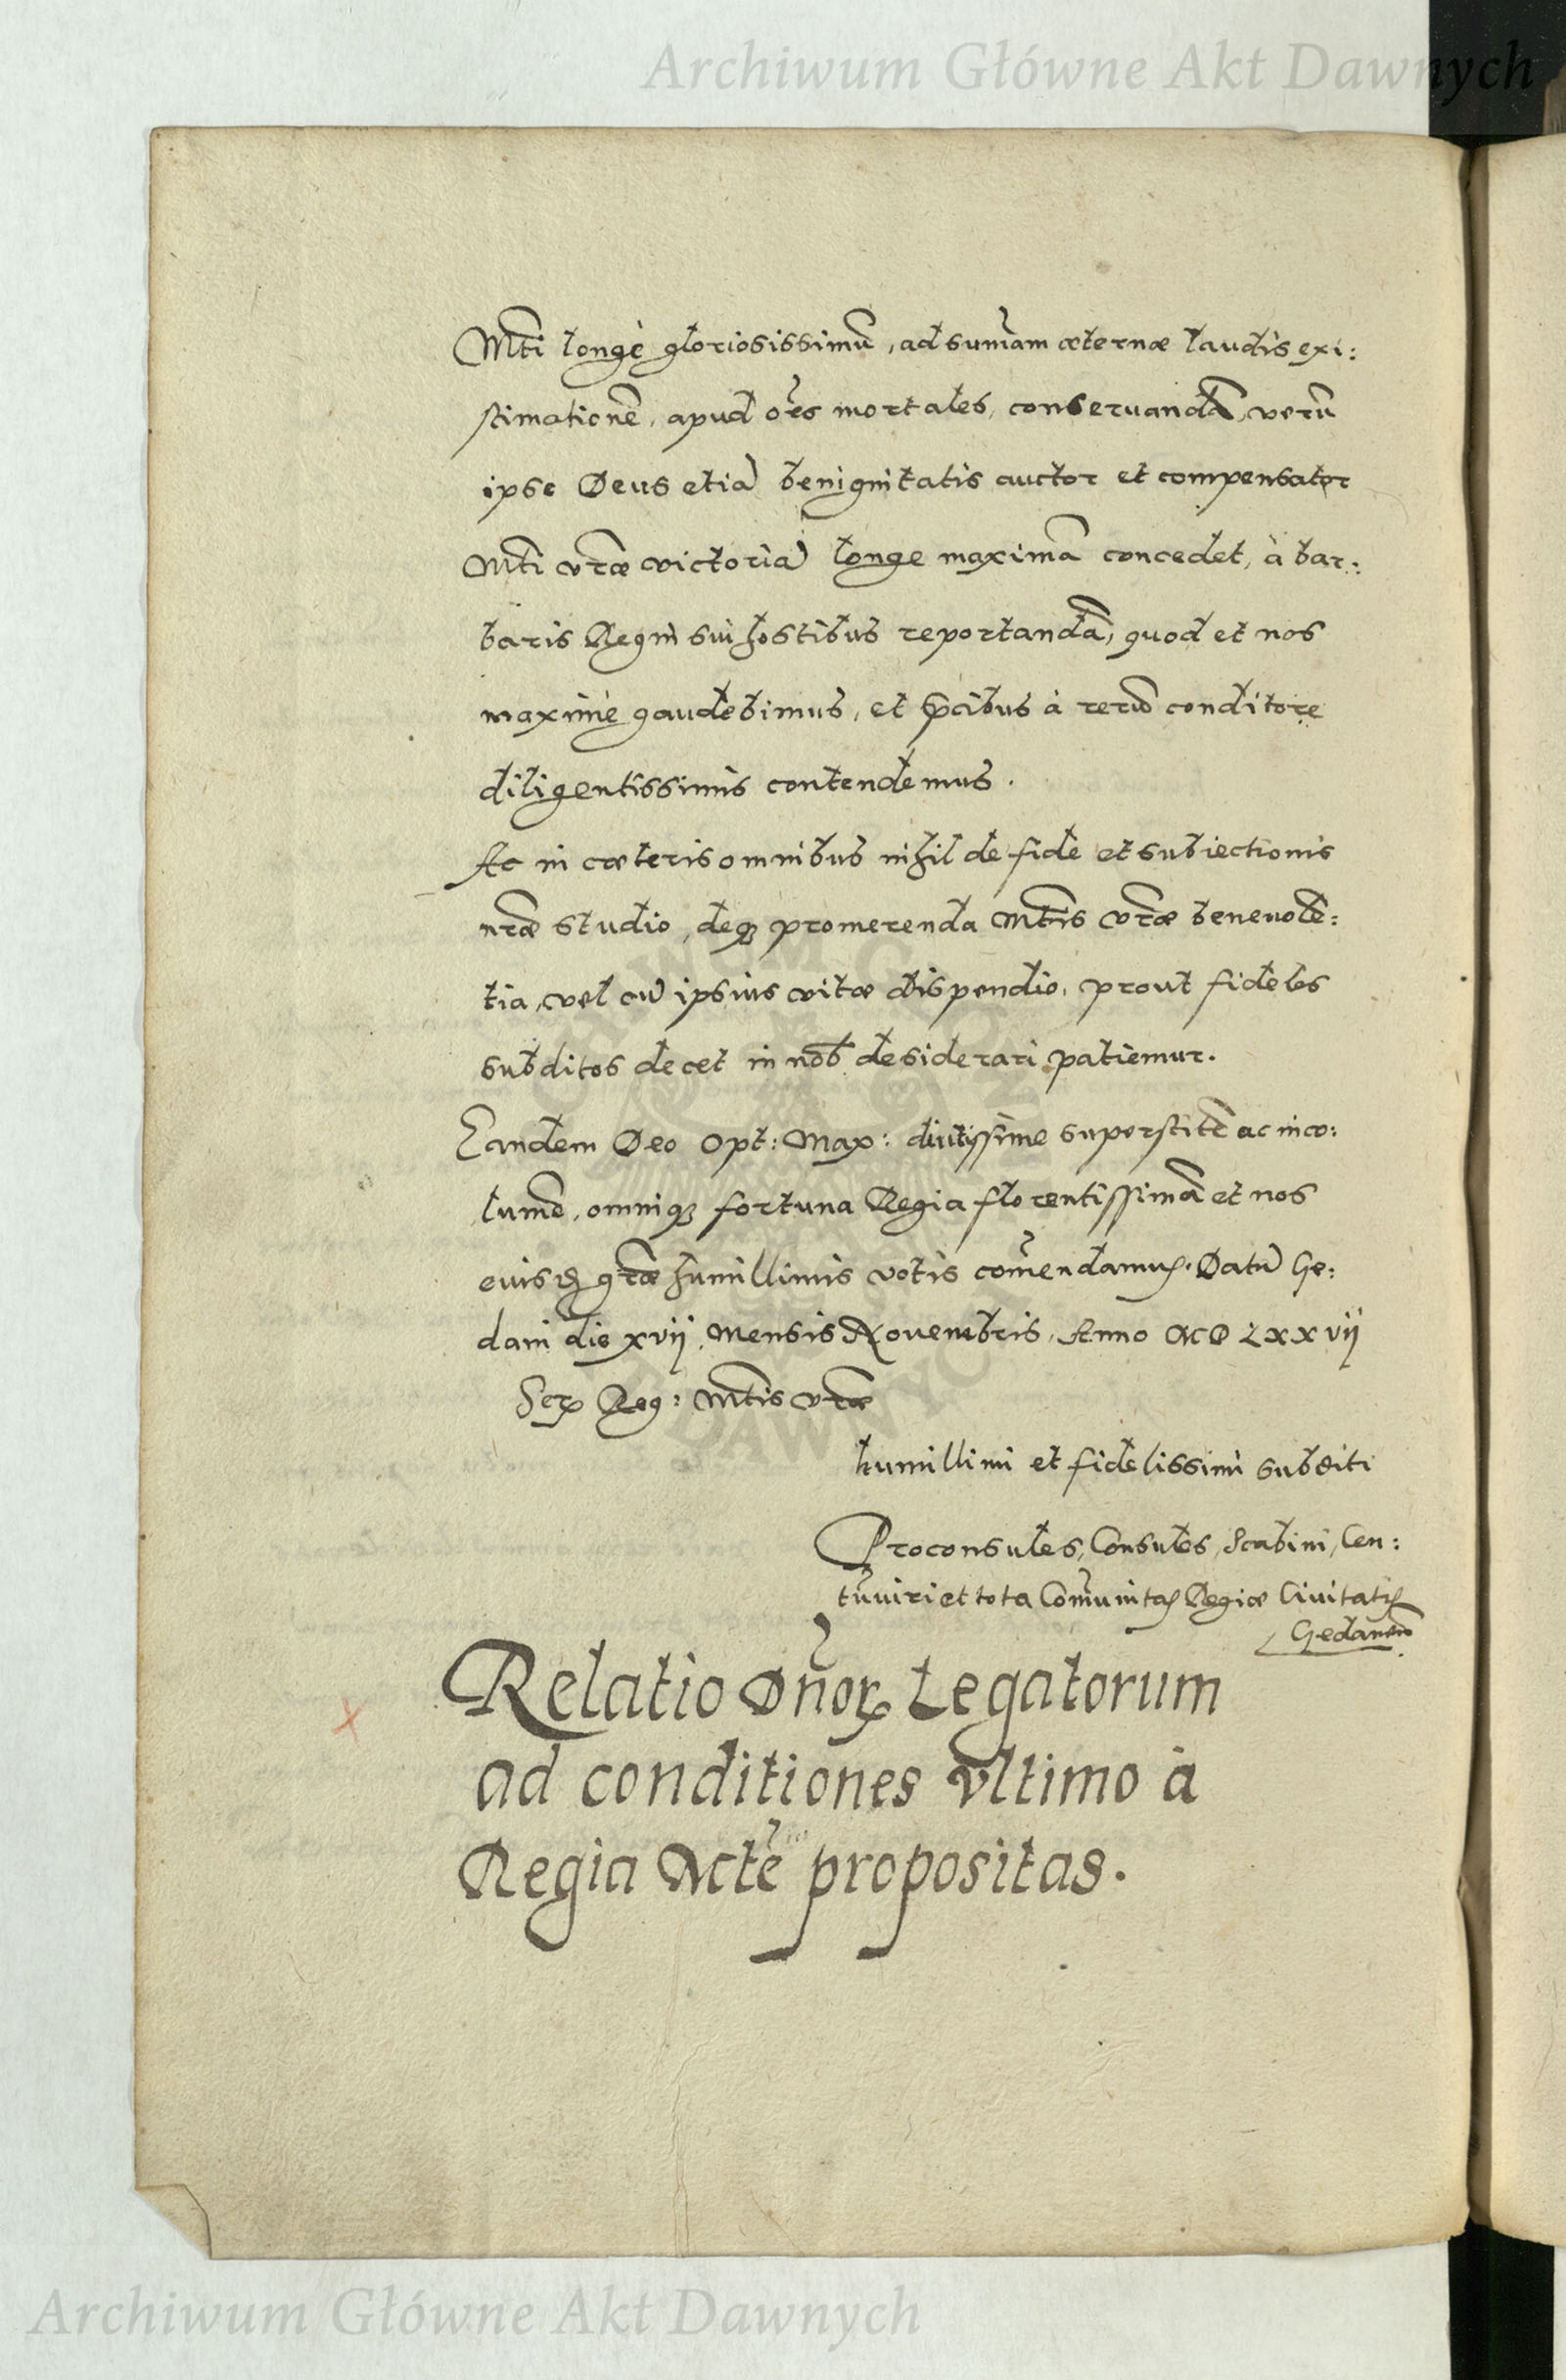 Archiwum Główne Akt Dawnych
Mti longè gloriosissimũ, ad sum̃am æternæ laudis exi:
stimationẽ, apud oẽs mortales, conseruandã, verũ
ipse Deus etiã benignitatis auctor et compensator
Mti vræ victoriã longe maximã concedet, à bar:
baris Regni sui hostibus reportandã, quod et nos
maximè gaudebimus, et p̃cibus à rerũ conditore
diligentissimis contendemus.
Ac in cæteris omnibus nihil de fide et subiectionis
nræ studio, deq₃ promerenda Mtis vræ beneuolẽ:
tia, vel cũ ipsius vitæ dispendio, prout fideles
subditos decet in nob̃ desiderari patiemur.
Eandem Deo Opt: Max: diutissime superstitẽ ac inco:
lumẽ, omniq₃ fortuna Regia florentissimã et nos
euisꝗ grãæ humillimis votis com̃endamus. Datũ Ge:
dani die xvij mensis Nouembris, Anno MD LXXvij
Ser Reg: Mtis vræ
humillimi et fidelissimi subditi
Proconsules, Consules, Scabini, Cen:
tũuiri et tota Com̃unitas Regiæ Ciuitatis
Gedanen
Relatio Dñoꝝ Legatorum
ad conditiones vltimo à
Regia Mctẽ propositas.
Archiwum Główne Akt Dawnych